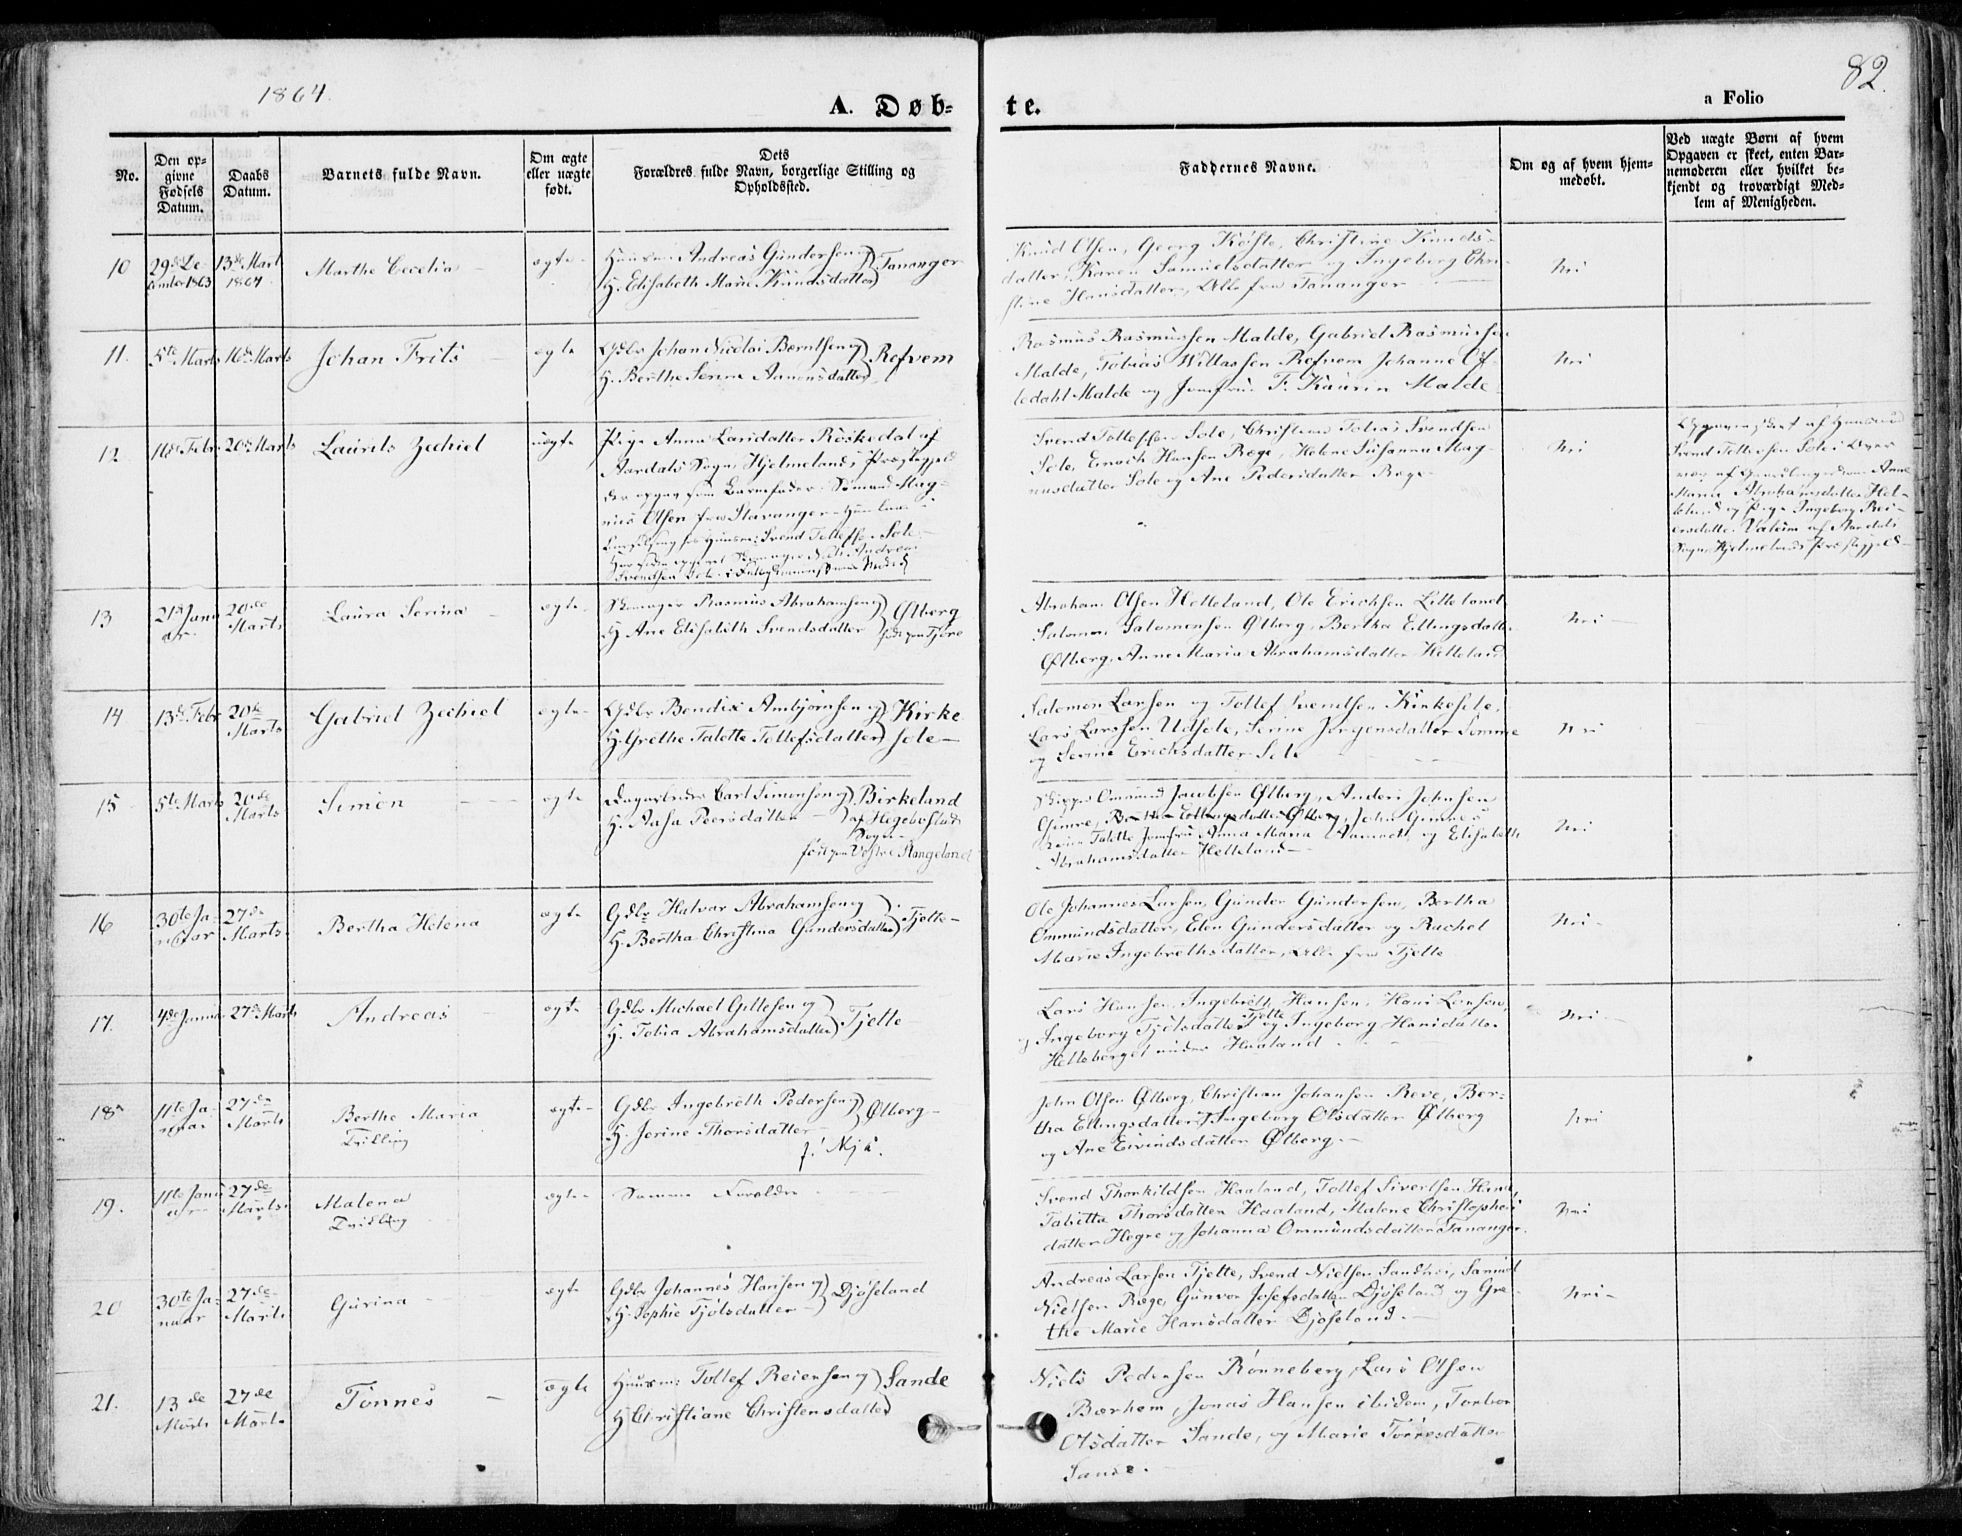 1864.
82.
A. Døb-
te.
a Folio
No.
Den op-
givne
Fødsels
Datum.
Daabs
Datum.
Barnets fulde Navn.
Om ægte
eller uægte
født.
Dets
Forældres fulde Navn, borgerlige Stilling og
Opholdssted.
Faddernes Navne.
Om og af hvem hjem-
medøbt.
Ved uægte Børn af hvem
Opgaven er skeet, enten Bar-
nemoderen eller hvilket be-
kjendt og troværdigt Med-
lem af Menigheden.
10
29de De-
cember 1863
13de Mart
1864
Marthe Cecelia
ægte
Huusm: Andreas Gundersen og
H. Elisabeth Marie Knudsdatter
Tananger
Knud Olsen, Georg Køhle, Christine Knuds-
datter, Karen Samuelsdatter og Ingeborg Chri-
stine Hansdatter, Alle fra Tananger
Nei
11.
5te Marts
16de Marts
Johan Frits
ægte
Gdbr Johan Nicolai Berntsen og
H. Berthe Serine Aanensdatter
Refvem
Rasmus Rasmussen Malde, Gabriel Rasmussen
Malde, Tobias Willassen Refvem Johanne Of-
tedahl Malde og Jomfru F. Kaurin Malde
Nei
12
14de Febr
20de Marts
Laurits Zechiel
uægte
Pige Anna Larsdatter Røskedal af
Aardals Sogn, Hjelmelands Præstegjeld
der opgav som Barnefader: Sømand Mag-
nus Olsen fra Stavanger. Hun var i
Huusm: Svend Tollefsen Sole.
Har siden opgivet Skomager Andreas
Svendsen Sole
Svend Tollefsen Sole, Christense Tobias Svendsen
Sole, Enoch Hansen Ræge, Helene Susanna Mag-
nusdatter Sole og Ane Pedersdatter Ræge
Nei
Opgaven skeet af Huusmand
Svend Tollefsen Sole i Over
vær af Anne
Maria Abrahamsdatter Hel-
leland og Pige Ingeborg Rei-
ersdatter Valeim af Aardals
Sogn, Hjelmelands Præstegjeld
13
21de Janu
ar.
20de
Marts
Laura Serina
ægte
Skomager Rasmus Abrahamsen og
H. Ane Elisabeth Svendsdatter
Ølberg
født paa Tjore
Abraham Olsen Helleland, Ole Erichsen Litteland,
Salomon Salomonsen Ølberg, Bertha Ellingsdatter
Ølberg, Anne Maria Abrahamsdatter Helleland
Nei
14
13de Febr
20de
Marts
Gabriel Zechiel
ægte
Gdbr Bendix Ambjørnsen og
H. Grethe Talette Tollefsdatter
Kirke
sole
Salomon Larsen og Tollef Svendsen Kirkesole,
Lars Larssen Udsole, Serine Jørgensdatter Somme
og Serine Erichsdatter Sole
Nei
15
5te Marts
20de
Marts
Simon
ægte
Dagarbeider Carl Simonsen og
H. Aasa Peersdatter
Birkeland
af Hegebostads
Sogn
født paa Vestre Stangeland
Skipper Ommund Jacobsen Ølberg, Anders Johnsen
Gimre, Bertha Ellingsdatter Ølberg, John Gimres
Kone Talette Jomfru Anna Maria Aamodt, og Elisabeth
Abrahamsdatter Helleland
Nei
16
30te Ja-
nuar
27de
Marts
Bertha Helena
ægte
Gdbr Halvor Abrahamsen og
H. Bertha Christina Gundersdatter
Tjelte
Ole Johannes Larsen, Gunder Gundersen, Bertha
Ommundsdatter, Elen Gundersdatter og Rachel
Marie Ingebrethsdatter, Alle fra Tjelte
Nei
17.
4de Januar
27de Marts
Andreas
ægte
Gdbr Michael Gittesen og
H. Tobia Abrahamsdatter
Tjelte
Lars Hansen, Ingebreth Hansen, Hans Larsen,
Ingeborg Tjølsdatter Tjelte
og Ingeborg Hansdatter
Helleberget under Haaland
Nei
18
11te Ja-
nuar
27de
Marts
Berthe Maria
Tvilling
ægte
Gdbr Ingebreth Pedersen og
H. Jorine Thorsdatter
Ølberg
John Olsen Ølberg, Christian Johansen Reve, Ber-
tha Ellingsdatter, Ingeborg Olsdatter Ølberg
og Ane Eivindsdatter Ølberg.
Nei
19.
11te Janu
ar
27de
Marts
Malena
Tvilling
ægte
Samme Forældre
Svend Thorkildsen Haaland, Tollef Sivertsen
Talietta Thorsdatter Haaland, Malene Christophers
datter Hogre og Johanna Ommundsdatter Tananger.
Nei
20
30te Ja-
nuar
27de
Marts
Gurina
ægte
Gdbr Johannes Hansen og
H. Sophie Tjølsdatter
Djøseland
Andreas Larsen Tjelte, Svend Nielsen Sandnes, Samuel
Nielsen Ræge, Gunvor Josefsdatter Djøseland og Gre-
the Marie Hansdatter Djøseland.
Nei
21.
13de
Marts
27de
Marts
Tønnes
ægte
Huusm: Tollef Reiersen og
H. Christiane Christensdatter
Sande
Niels Pedersen Rønneberg, Lars Olsen
Bærhem, Jonas Hansen ibidem, Torbor
Olsdatter Sande, og Marie Tørresdatter
Sande.